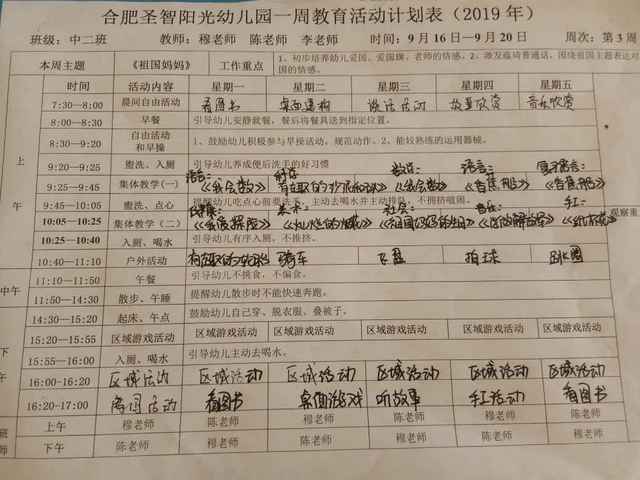 合肥圣智阳光幼儿园一周教育活动计划表（2019年）
班级：中二班 教师：穆老师 陈老师 李老师 时间：9月16日—9月20日 周次：第3周
本周主题 《祖国妈妈》 工作重点 1、初步培养幼儿爱国、爱国旗、老师的情感。2、激发 普通话，围绕祖国主题表达对
国的情感。
时间 活动内容 星期一 星期二 星期三 星期四 星期五
上午
7:30—8:00 晨间自由活动 看图书 桌面建构 谈话活动 故事欣赏 音乐欣赏
8:00—8:30 早餐 引导幼儿安静就餐，餐后将餐具送到指定位置。
8:30—9:20 自由活动和早操 1、鼓励幼儿积极参与早操活动，规范动作。2、能较熟练的运用器械。
9:20—9:25 盥洗、入厕 引导幼儿养成便后洗手的好习惯
9:25—9:45 集体教学（一） 语言：《我会数》 数学：《我会数》 语言：
9:45—10:05 盥洗、点心 提醒幼儿吃点心前要洗手，主动去喝水并主动排队，不拥挤嘻闹。
10:05—10:25 集体教学（二） 美术： 社会： 音乐： 手工： 观察重
10:25—10:40 入厕、喝水 引导幼儿有序入厕，不推挤。
10:40—11:10 户外活动 骑车 拍球 跳圈
中午
11:10—11:50 午餐 引导幼儿不挑食，不偏食。
11:50—14:30 散步、午睡 提醒幼儿散步时不能快速奔跑。
14:30—15:20 起床、午点 鼓励幼儿自己穿、脱衣服、叠被子。
下午
15:20—15:55 区域游戏活动 区域游戏活动 区域游戏活动 区域游戏活动 区域游戏活动 区域游戏活动
15:55—16:00 入厕、喝水 引导幼儿主动去喝水。
16:00—16:20 区域活动 区域活动 区域活动 区域活动 区域活动 区域活动
16:20-17:00 离园活动 看图书 桌面游戏 听故事 手工活动 看图书
班师
上午 穆老师 陈老师 穆老师 陈老师 穆老师
下午 陈老师 穆老师 陈老师 穆老师 陈老师